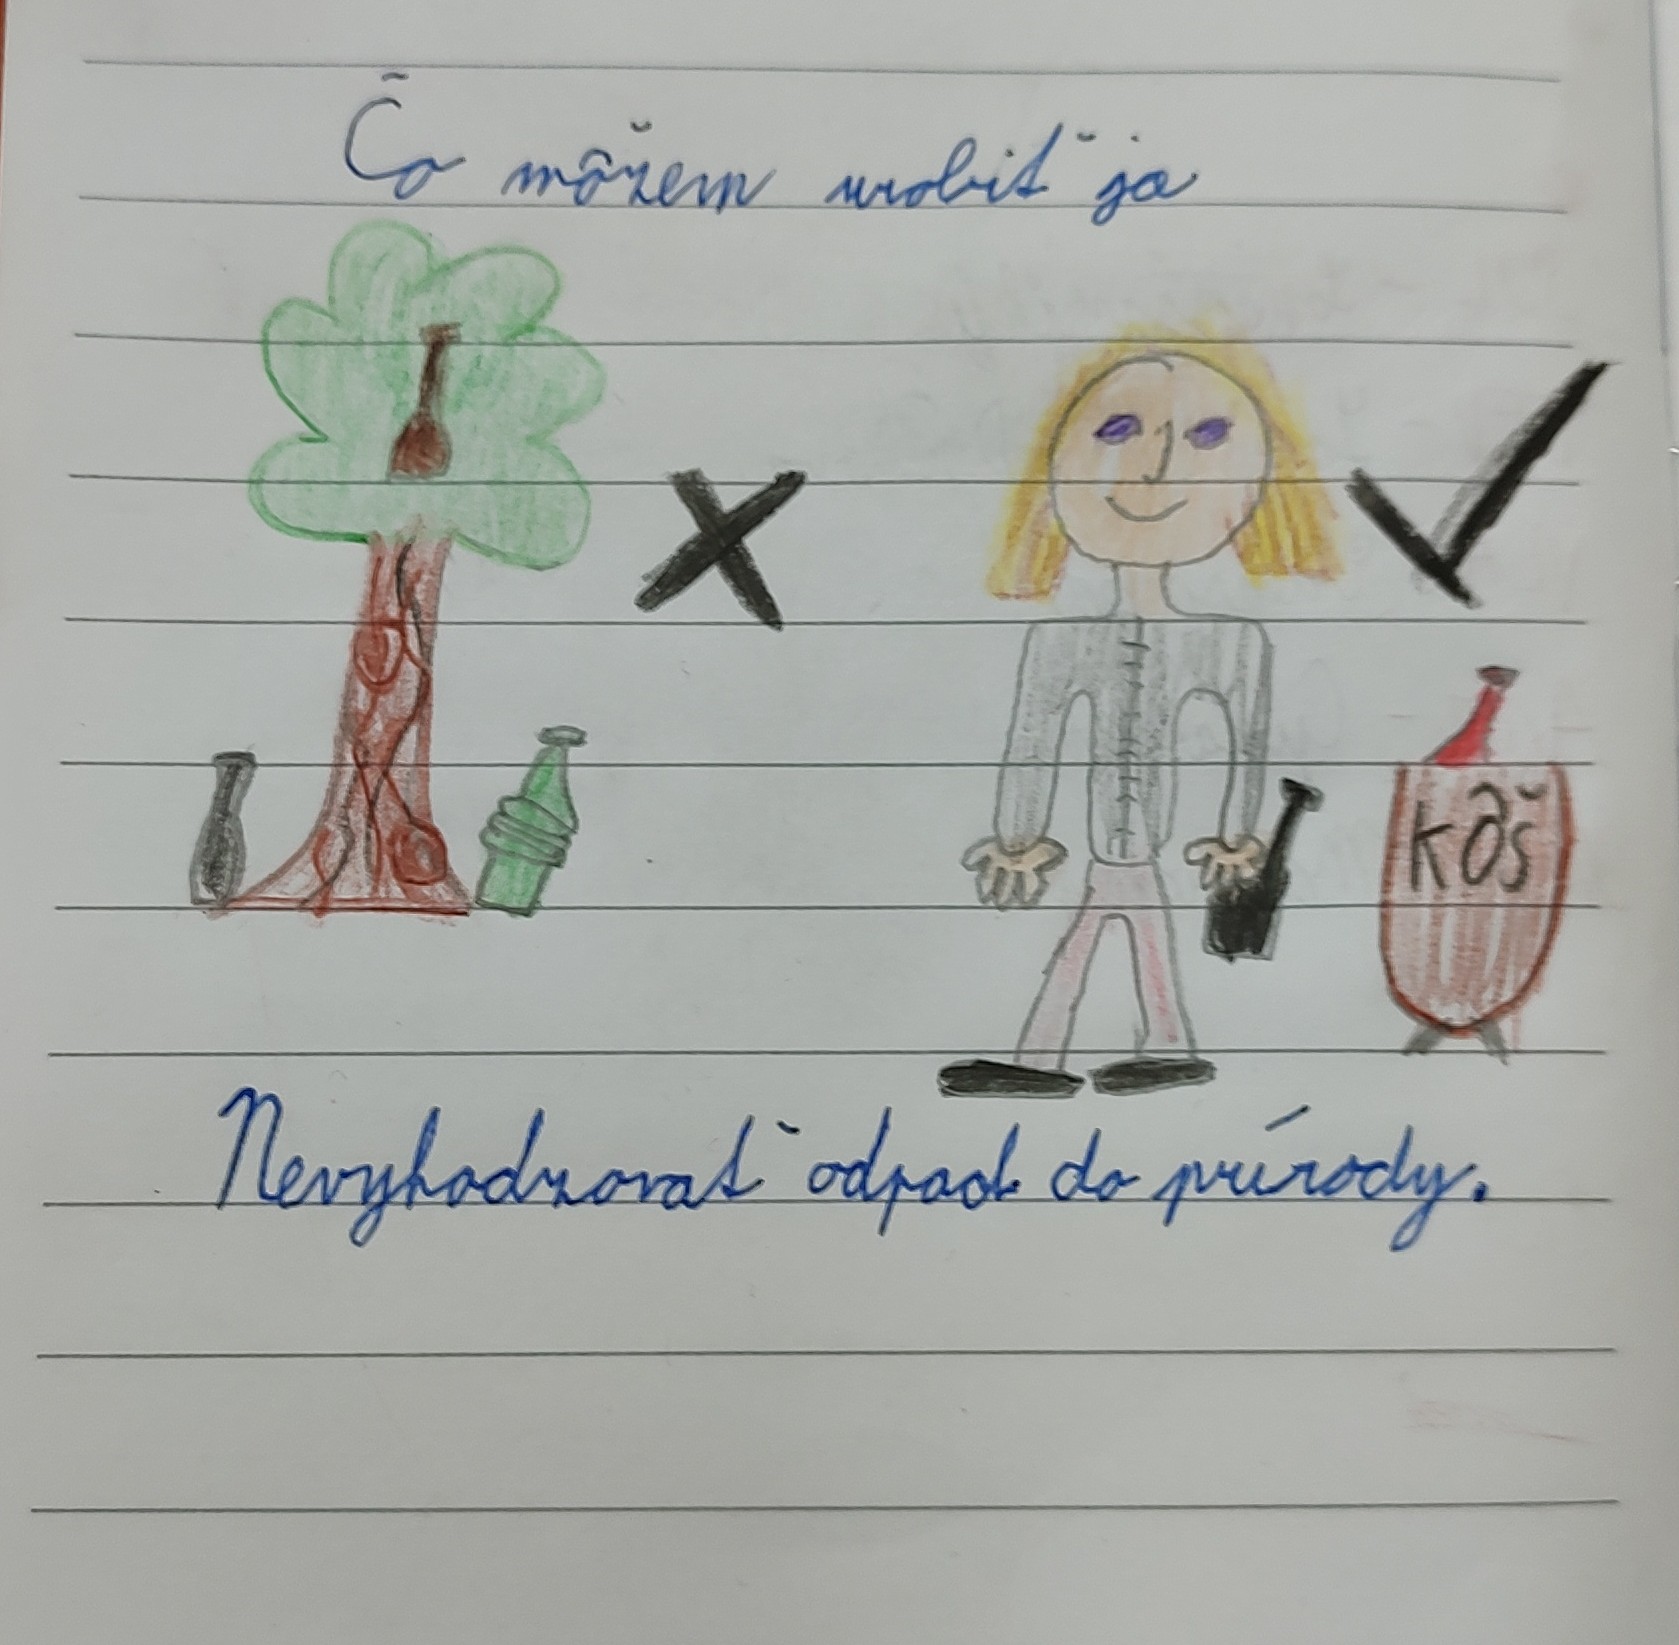 Čo môžem urobiť ja
kôš
Nevyhadzovať odpad do prírody.